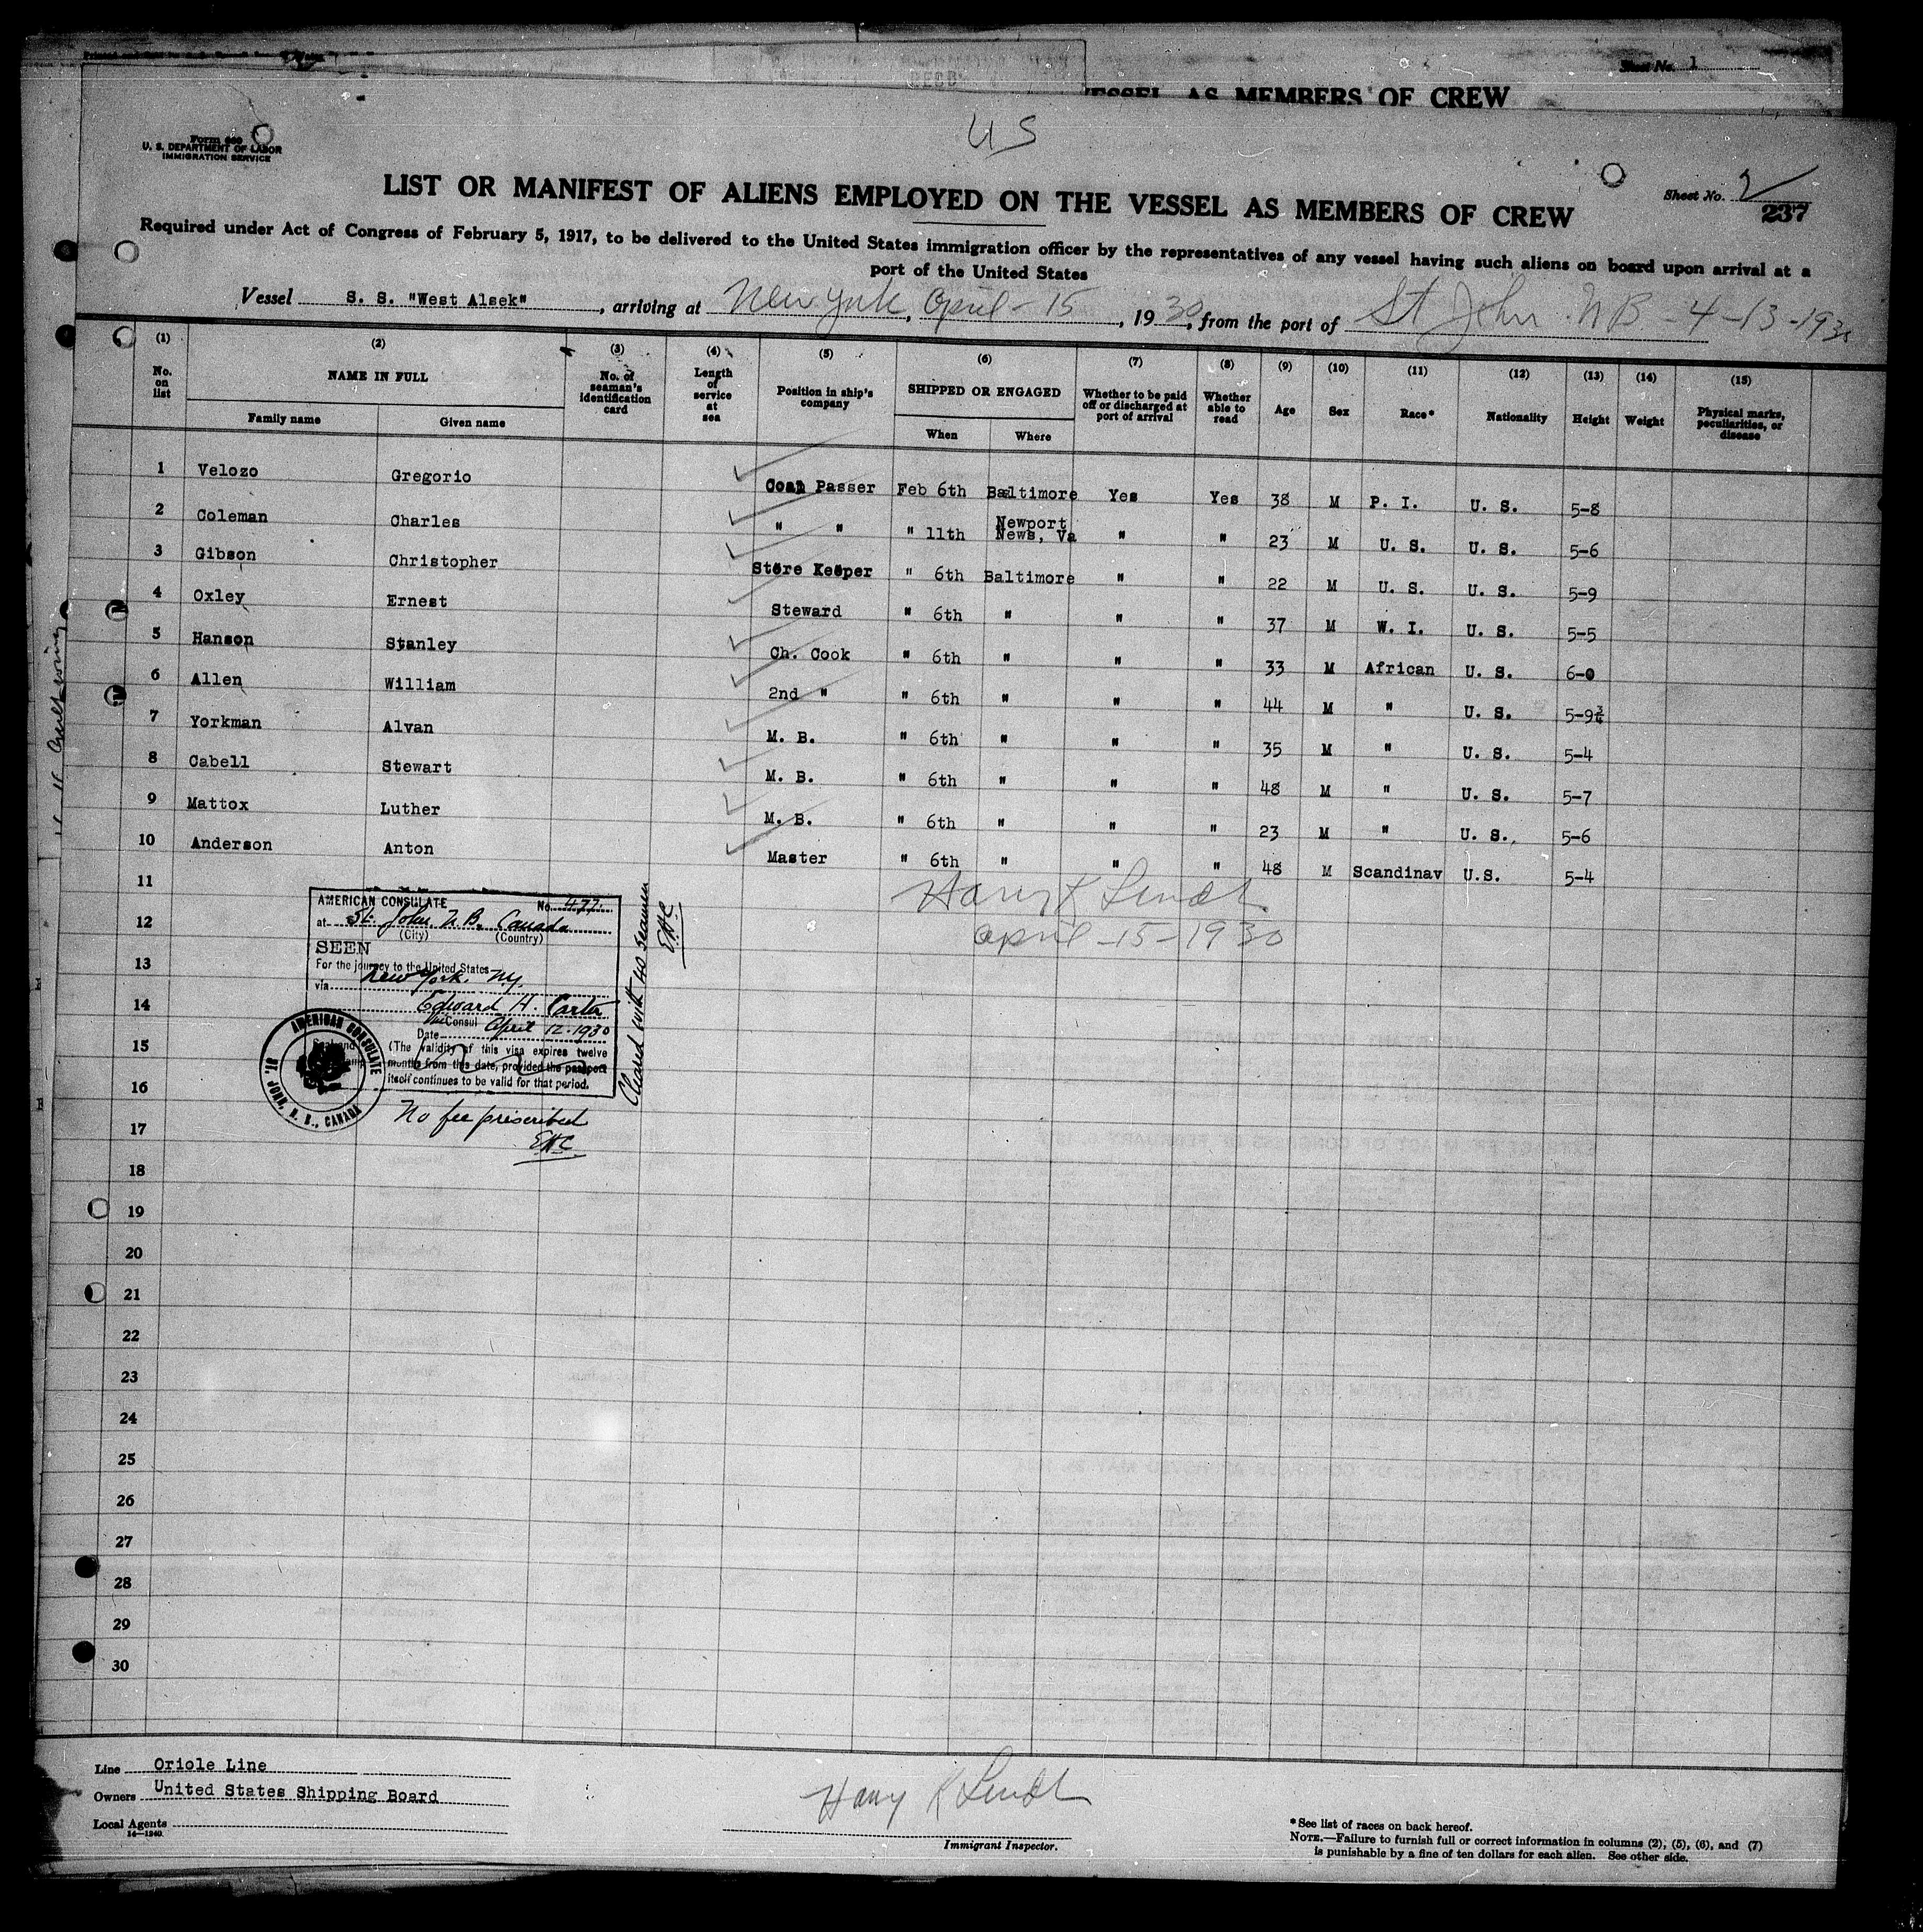 Sheet No. 1
VESSEL AS MEMBERS OF CREW
U S
U. S. DEPARTMENT OF LABOR
IMMIGRATION SERVICE
LIST OR MANIFEST OF ALIENS EMPLOYED ON THE VESSEL AS MEMBERS OF CREW
Sheet No. 2
237
Required under Act of Congress of February 5, 1917, to be delivered to the United States immigration officer by the representatives of any vessel having such aliens on board upon arrival at a
port of the United States
Vessel S. S. "West Alsek", arriving at New York, April - 15, 1930, from the port of St John N B - 4-13-1930
(1) (2) (3) (4) (5) (6) (7) (8) (9) (10) (11) (12) (13) (14) (15)
No. on list NAME IN FULL No. of seaman's identification card Length of service at sea Position in ship's company SHIPPED OR ENGAGED Whether to be paid off or discharged at port of arrival Whether able to read Age Sex Race* Nationality Height Weight Physical marks, peculiarities, or disease
Family name Given name When Where
1 Velozo Gregorio Coal Passer Feb 6th Baltimore Yes Yes 38 M P. I. U. S. 5-8
2 Coleman Charles " " " 11th Newport News, Va " " 23 M U. S. U. S. 5-6
3 Gibson Christopher Store Keeper " 6th Baltimore " " 22 M U. S. U. S. 5-9
4 Oxley Ernest Steward " 6th " " " 37 M W. I. U. S. 5-5
5 Hanson Stanley Ch. Cook " 6th " " " 33 M African U. S. 6-0
6 Allen William 2nd " " 6th " " " 44 M " U. S. 5-9¾
7 Yorkman Alvan M. B. " 6th " " " 35 M " U. S. 5-4
8 Cabell Stewart M. B. " 6th " " " 48 M " U. S. 5-7
9 Mattox Luther M. B. " 6th " " " 23 M " U. S. 5-6
10 Anderson Anton Master " 6th " " " 48 M Scandinav U.S. 5-4
11
12
13
14
15
16
17
18
19
20
21
22
23
24
25
26
27
28
29
30
Harry K
April - 15 - 1930
AMERICAN CONSULATE No. 477
at St. John, N. B. Canada
(City) (Country)
SEEN
For the journey to the United States
via New York, N.Y.
Edward H. Carter
Vice Consul
Date April 12-1930
(The validity of this visa expires twelve
months from this date, provided the passport
itself continues to be valid for that period.
AMERICAN CONSULATE
ST. JOHN, N. B., CANADA
No fee prescribed
EHC
Cleared with 40 seamen
EHC
Line Oriole Line
Owners United States Shipping Board
Local Agents
14-1240
Harry K
Immigrant Inspector.
*See list of races on back hereof.
NOTE.—Failure to furnish full or correct information in columns (2), (5), (6), and (7)
is punishable by a fine of ten dollars for each alien. See other side.